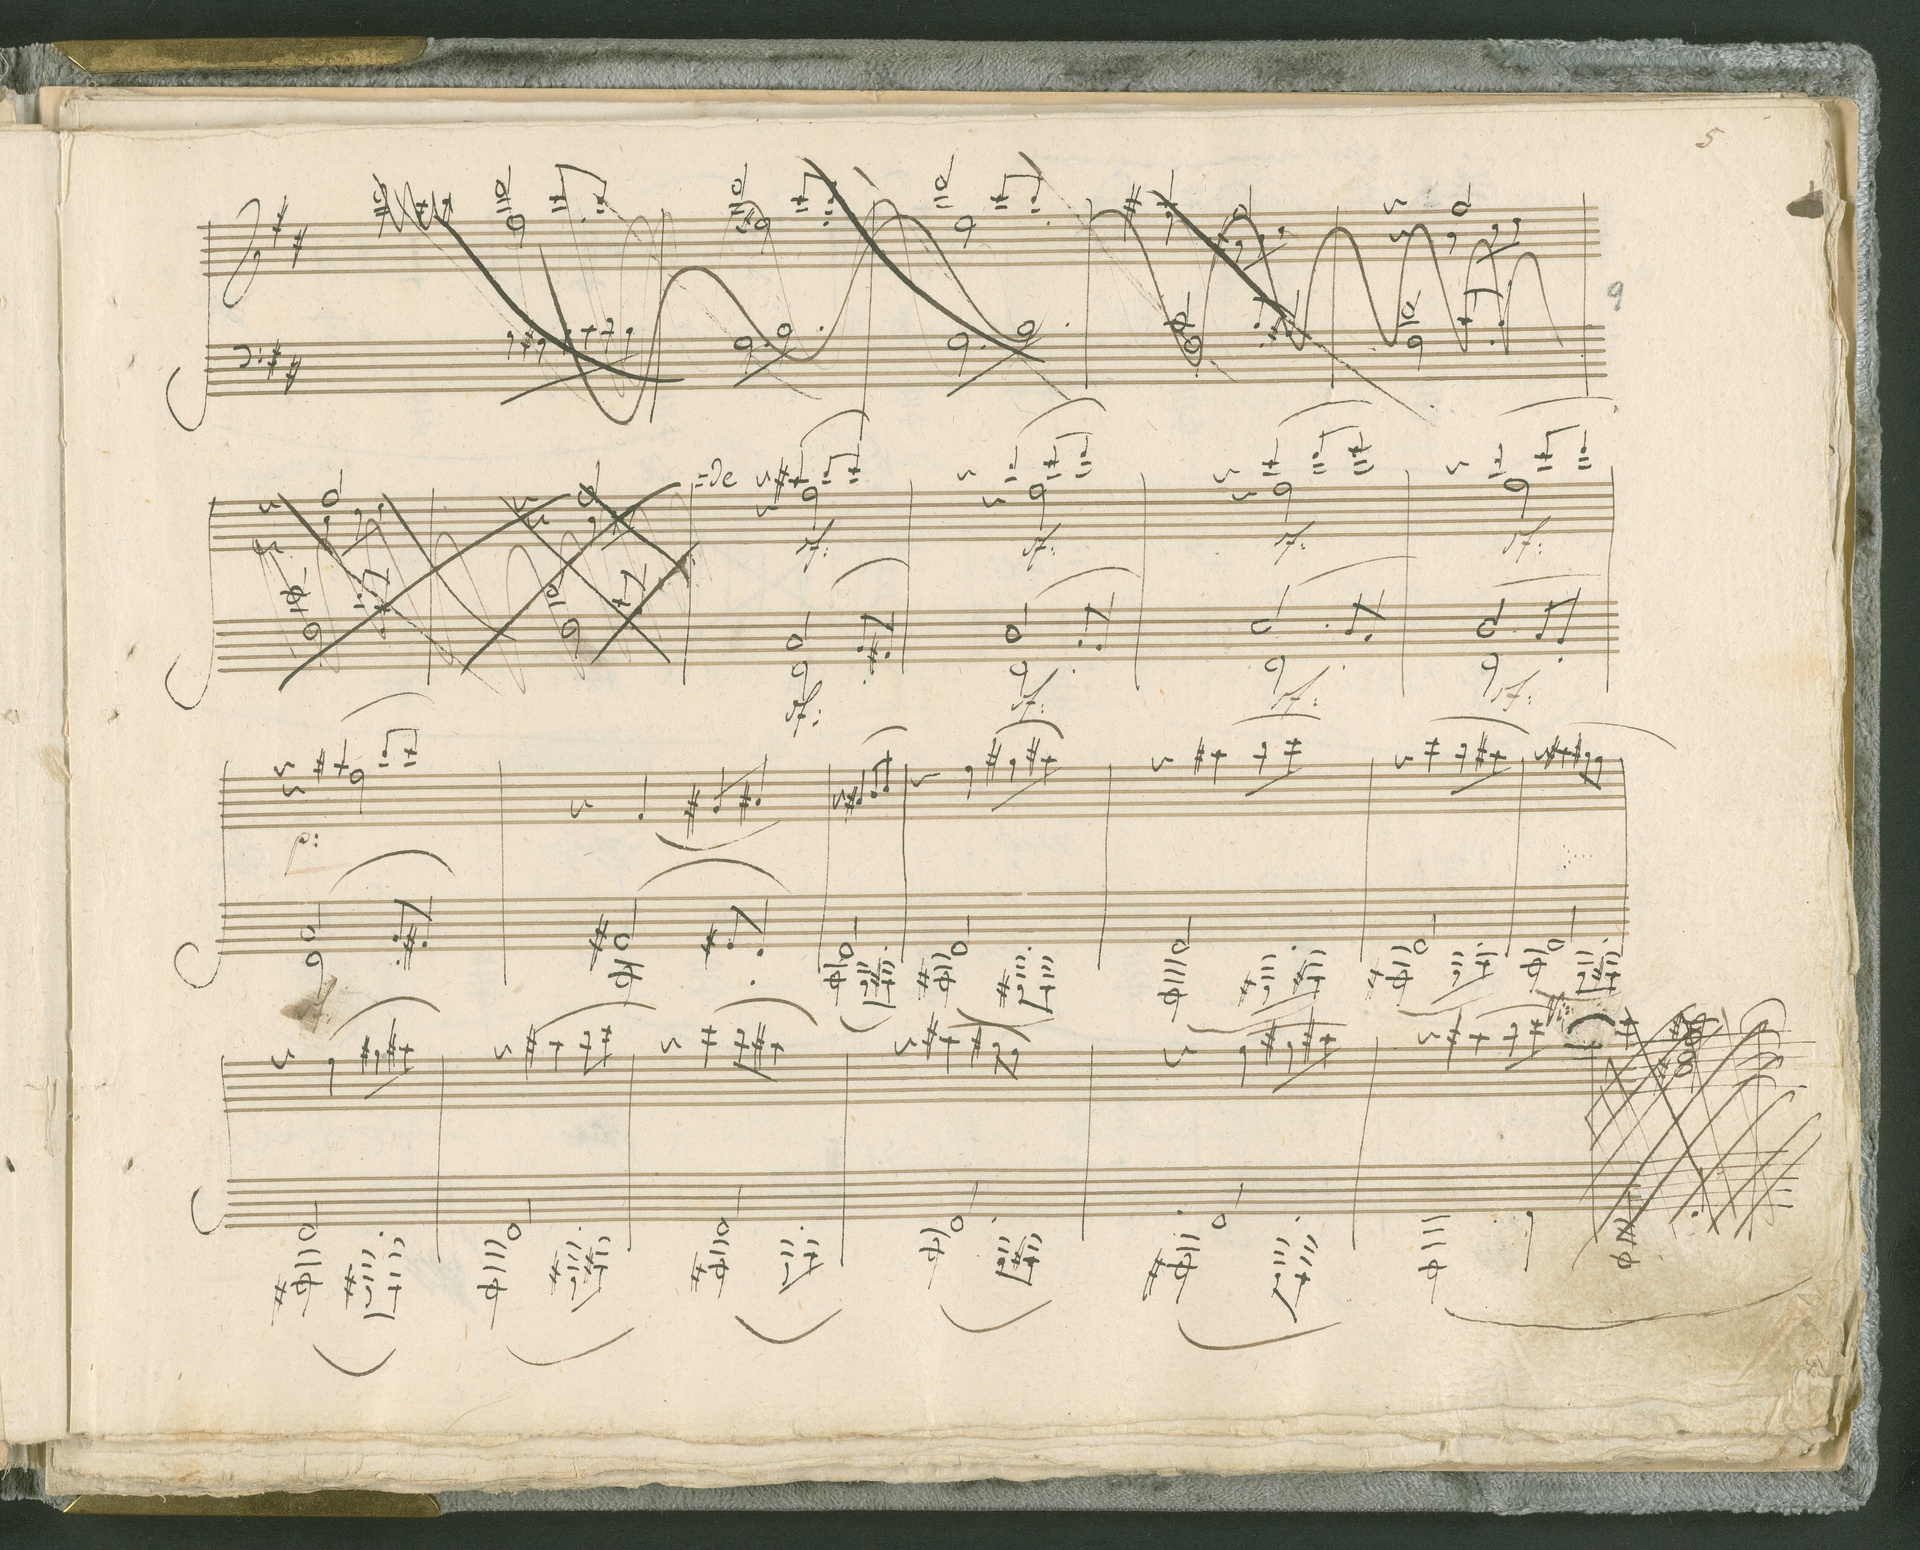 5
9
=de
sf: sf: sf: sf:
sf: sf: sf: sf:
p: